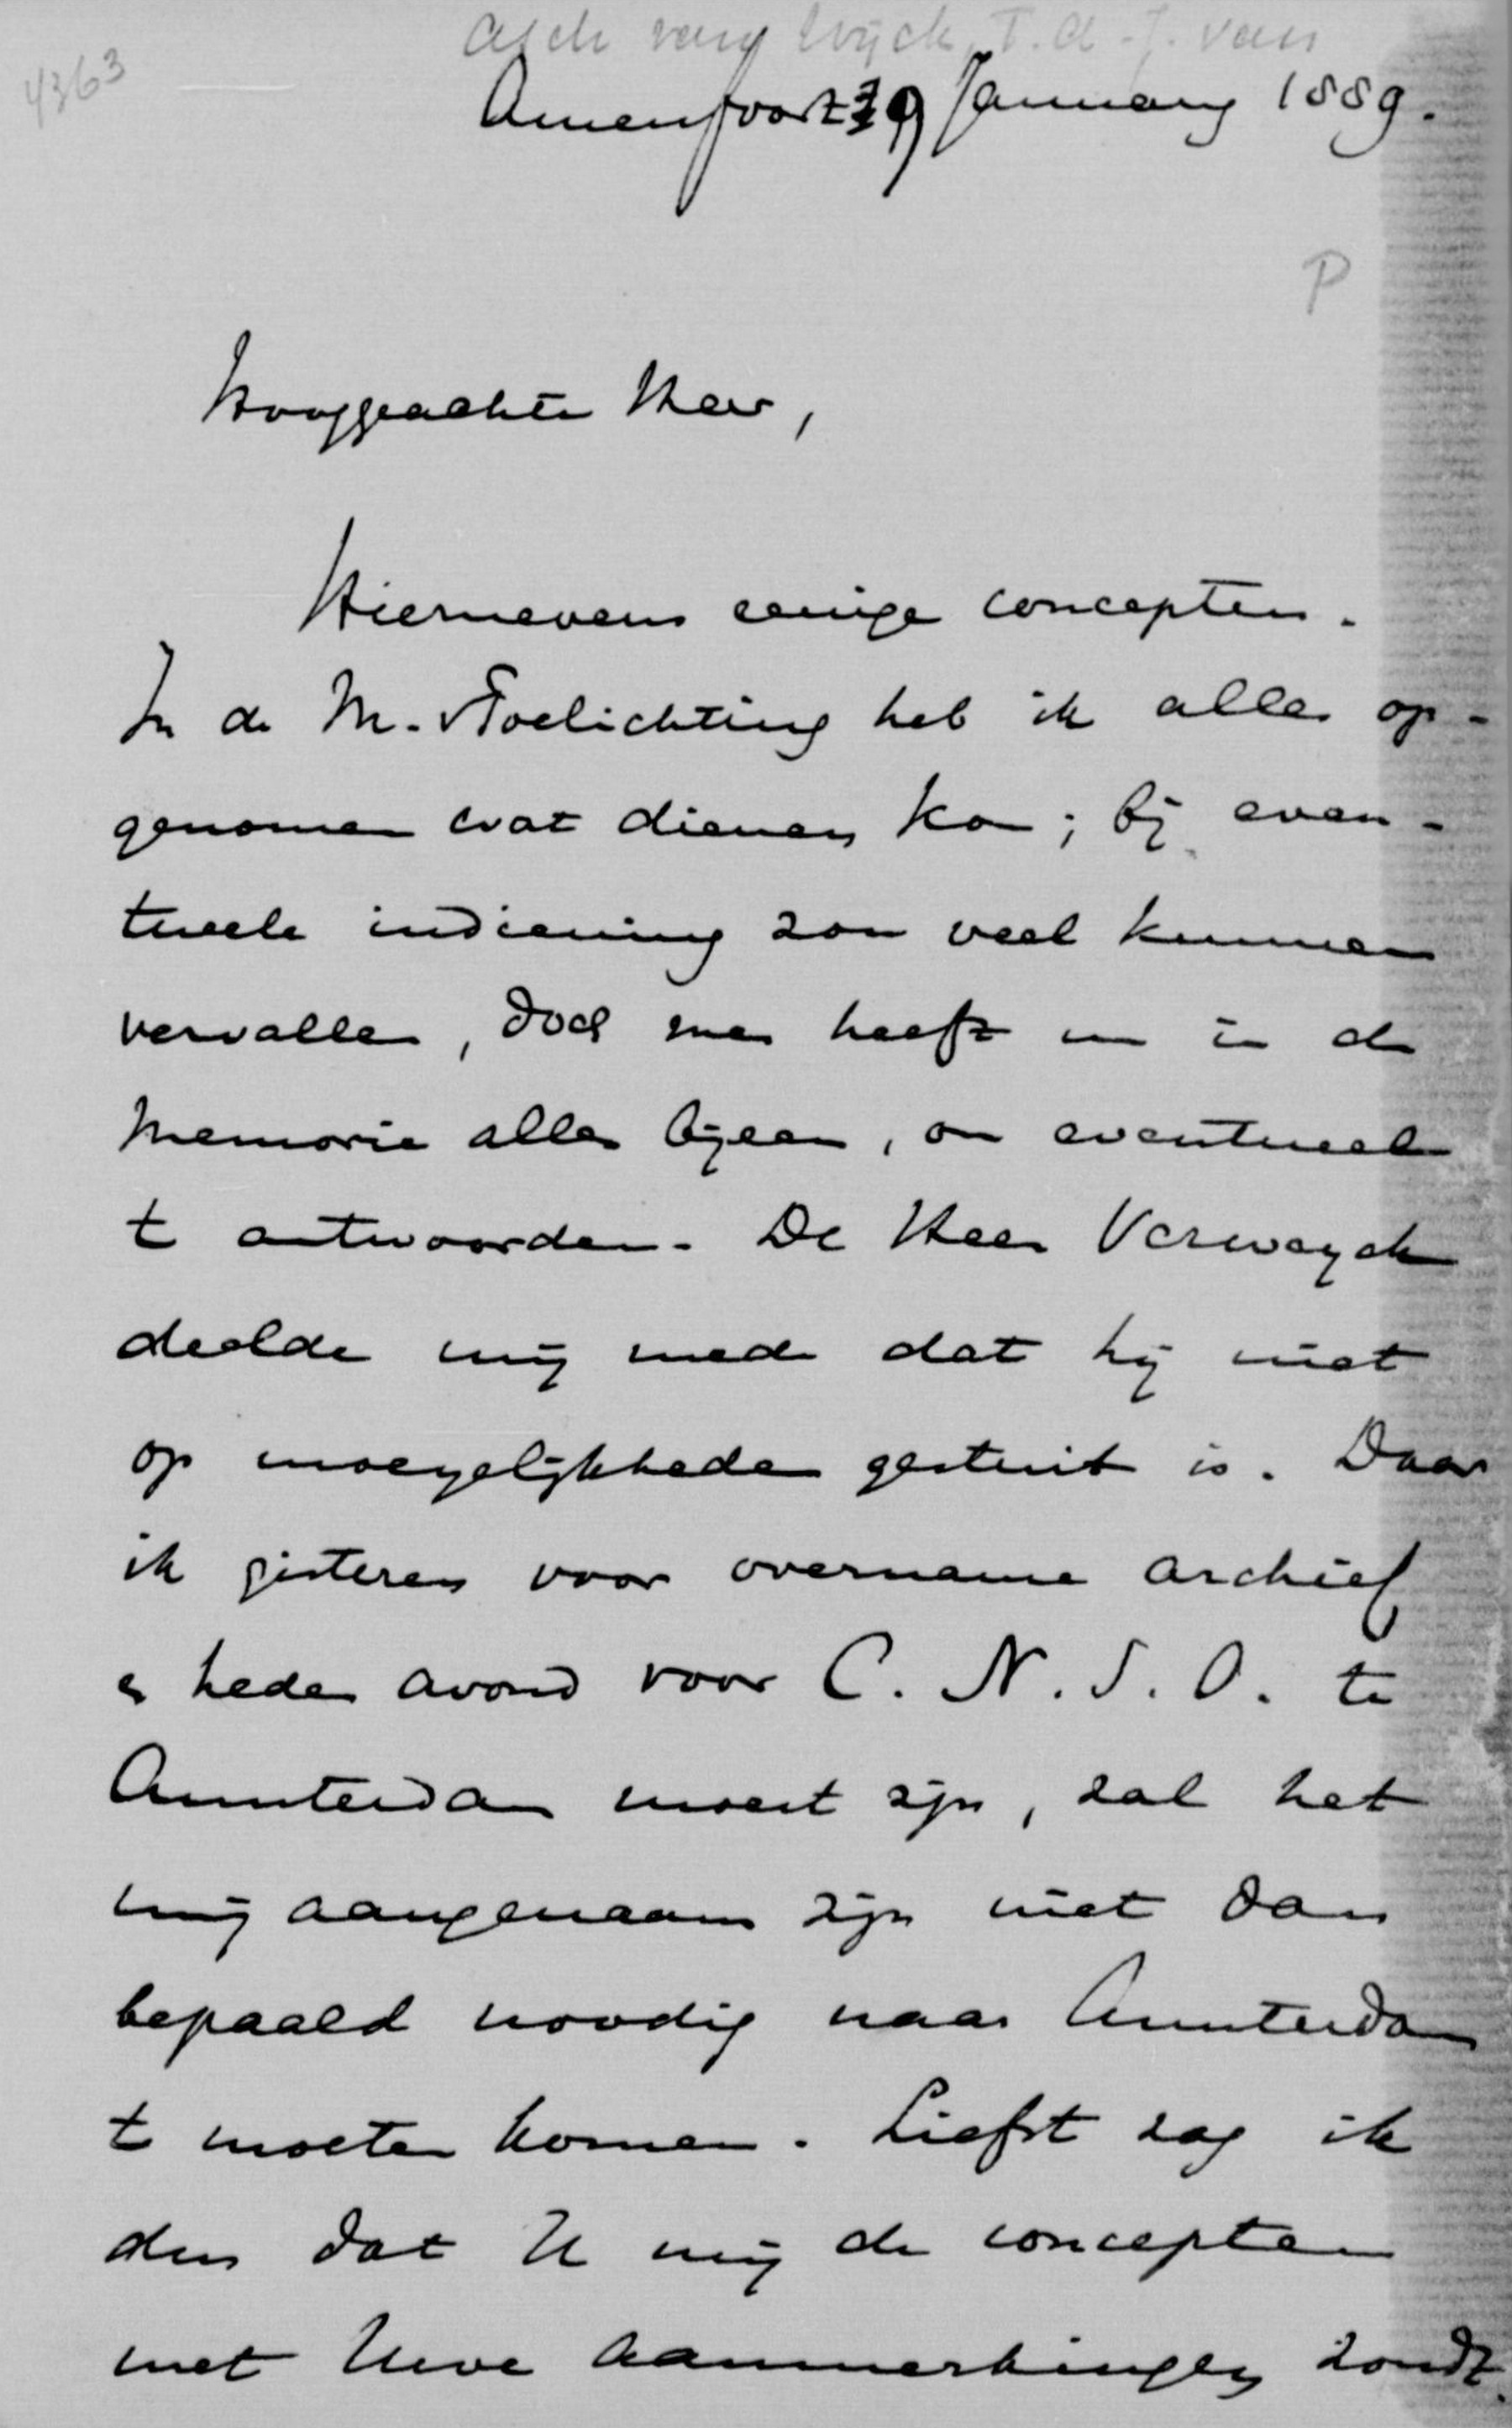 Asch van Wijck, T. A. J. van
4363
Amersfoort 29 January 1889.
P
Hooggeachte Heer,
Hiernevens eenige concepten.
In de M. v Toelichting heb ik alles op-
genomen wat dienen kon; bij even-
tueele indiening zou veel kunnen
vervallen, doch men heeft nu in de
Memorie alles bijeen, om eventueel
te antwoorden. De Heer Verweyck
deelde mij mede dat hij niet
op moeyelijkheden gestuit is. Daar
ik gisteren voor overname archief
en heden avond voor C. N. S. O. te
Amsterdam moest zijn, zal het
mij aangenaam zijn niet dan
bepaald noodig naar Amsterdam
te moeten komen. Liefst zag ik
dus dat U mij de concepten
met Uwe aanmerkingen zondt.